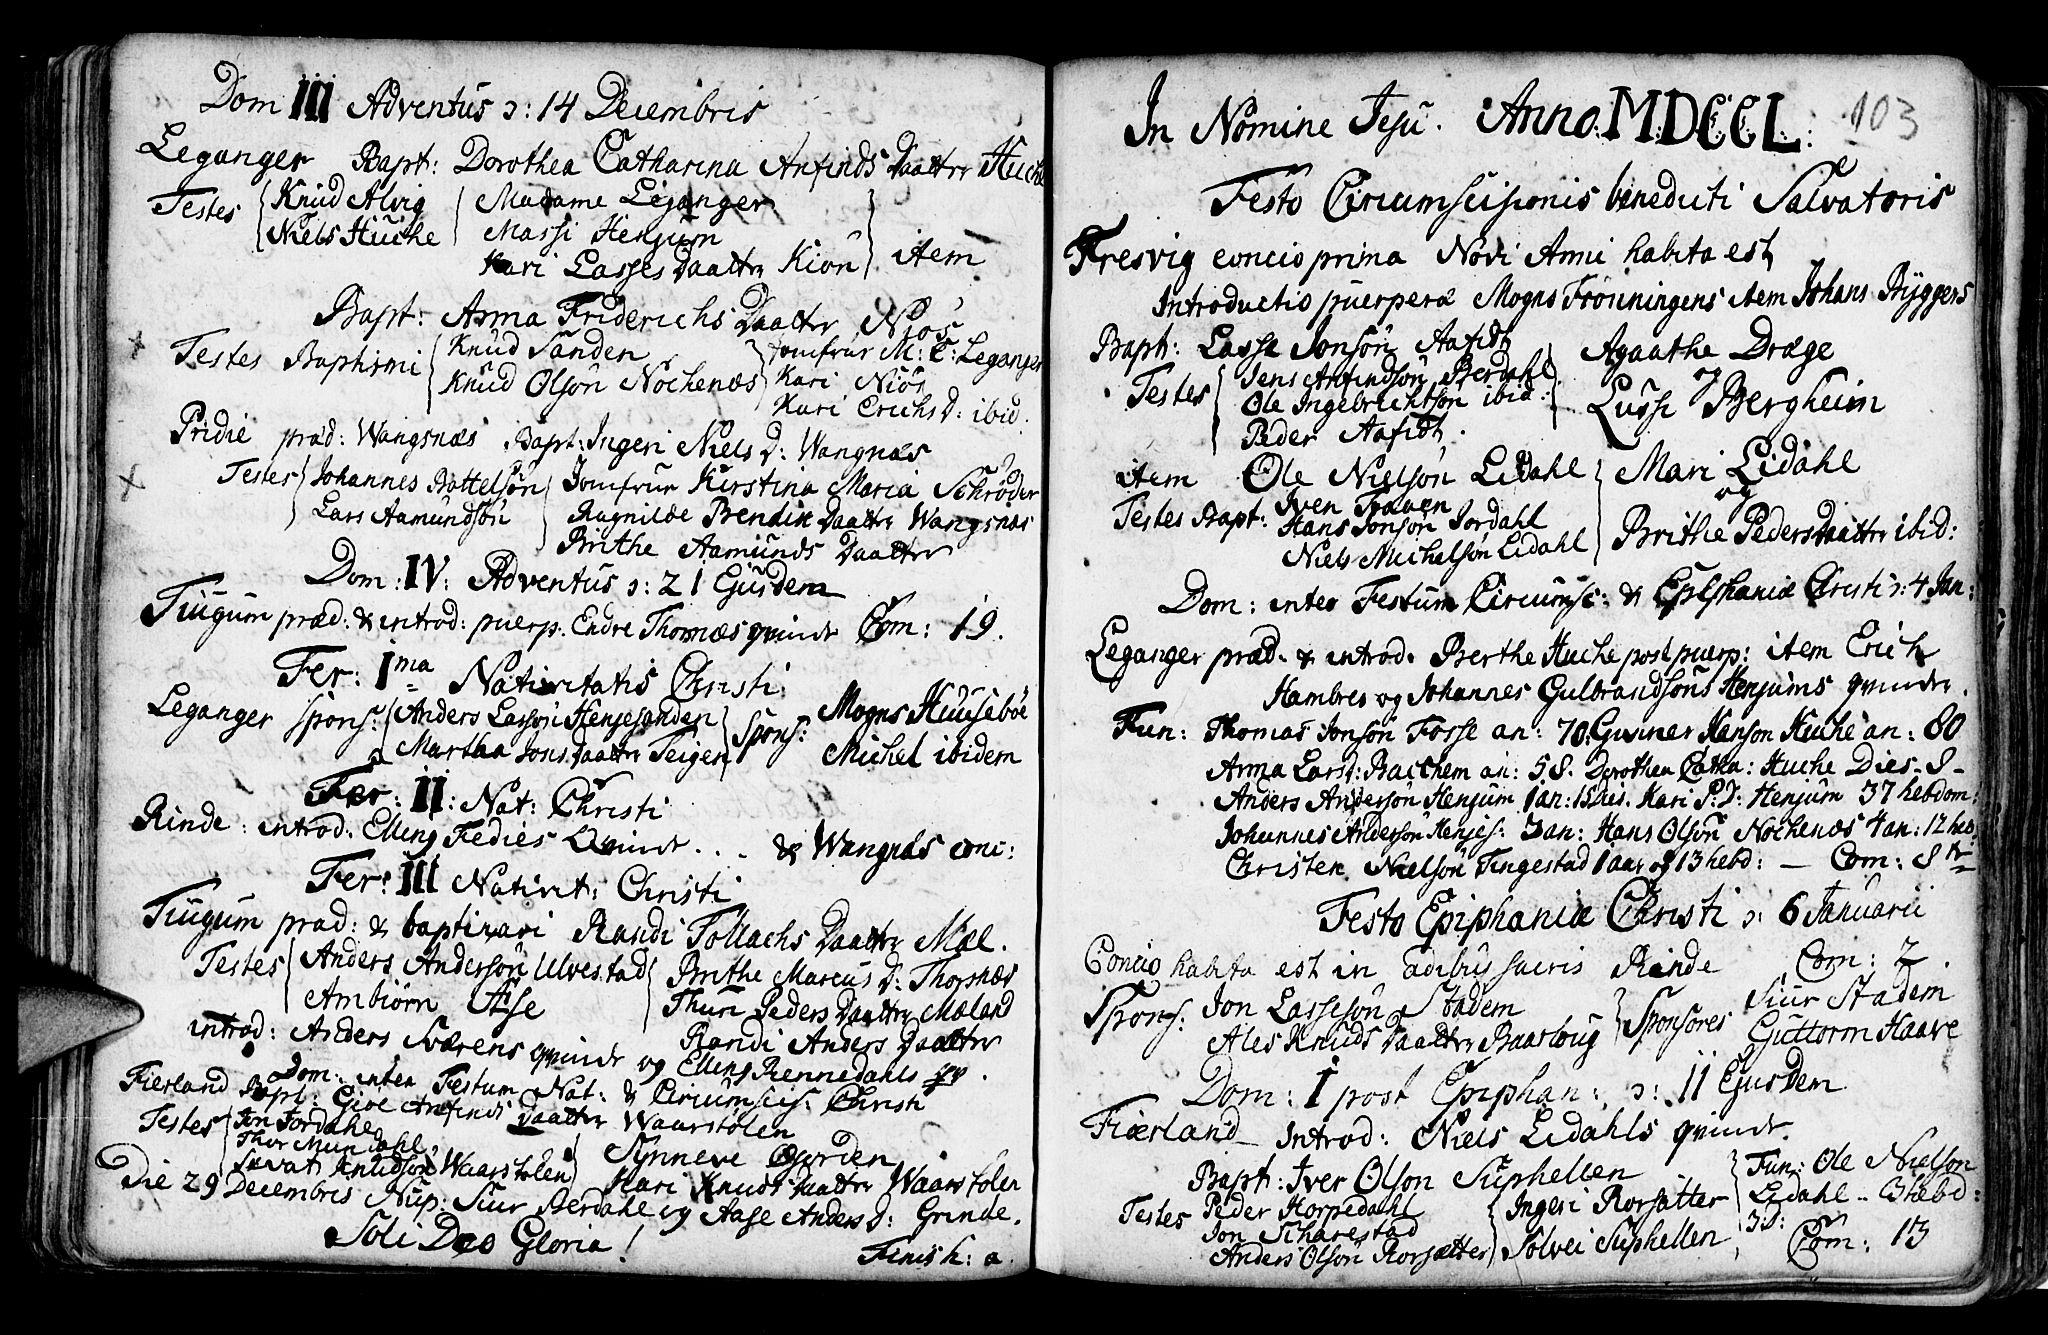 Dom III Adventus ɔ: 14 Decembris
Leganger Bapt: Dorothea Catharina Anfinds Daatter Huche
Testes Knud Alvig Madame Leganger
Niels Huche Massi Henjum
Kari Lasses Daatter Kion item
Bapt: Anna Friderichs Daatter Niös
Testes Baptismi Knud Sanden Jomfrue M: C: Leganger
Knud Olsön Nochenæs Kari Niös
Kari Erichs D: ibid.
Pridie præd: Wangsnæs Bapt: Ingeri Niels D: Wangnæs
Testes Johannes Bottelsön Jomfrue Kirstina Maria Schröder
Lars Aamundsön Ragnilde Bendix Daatter Wangsnæs
Brithe Aamunds Daatter
Dom: IV: Adventus ɔ: 21 Ejusdem
Tiugum præd: & introd: puerp. Endre Thornæs qvinde Com: 19.
Fer: I ma Nativitatis Christi
Leganger Spons: Anders Lassön Henjesanden Spons: Mogns Huuseböe
Martha Jons Daatter Teigen Michel ibidem
Fer: II: Nat: Christi
Rinde: introd. Elling Fedies Qvinde . . & Wangnæs conc:
Fer: III Nativit: Christi
Tiugum præd: & baptizavi Randi Tollachs Daatter Mæl.
Testes Anders Andersön Ulvestad Brithe Marcus D: Thorsnæs
Ambiörn Ase Thuri Peders Daatter Mæland
Randi Anders Daatter
introd: Anders Sværens qvinde og Elling Rennedahls qv.
Dom: inter Festum Nat: & Circumscis: Christi
Fierland Bapt: Giöe Anfinds Daatter Waarstölen
Testes Jon Jordahl Synneve Ögorden
Thor Mundahl Kari Knuds Daatter Waarstolen
Siovat Knudson Waarstolen
Die 29 Decembris Nup: Siur Berdahl og Aase Anders D: Grinde.
Soli Deo Gloria!
Finis h: a.
103
In Nomine Jesu. Anno: MDCCL:
Festo Circumscisionis benedicti Salvatoris
Fresvig concio prima Novi Anni habita est
Introductio puerperæ Mogns Frönningens item Johans Byggers
Bapt: Lasse Jonsön Aafidt Agaathe Dræge
Testes Jens Anfindsön Berdahl og
Ole Ingebrichtsön ibid: Lussi Bergheim
Peder Aafidt.
item Ole Nielsön Lidahl Mari Lidahl
Testes Bapt: Iven Fræven og
Hans Jonsön Jordahl Brithe Peders Daatter ibid:
Niels Michelsön Lidahl
Dom: inter Festum Circumsc: & Epiphaniæ Christi ɔ: 4 Jan:
Leganger præd. & introd. Berthe Huche post puerp: item Erich
Hambres og Johannes Gulbrandsöns Henjums qvinde.
Fun: Thomas Jonsön Fosse an: 70. Gunner Hanson Huche an: 80
Anna Lars D: Bacchem an: 58. Dorothea Catha: Huche Dies. 8 -
Anders Andersön Henjum 1 an: 15 Dies. Kari P: D: Henjum 37 hebdom:
Johannes Andersön Henjes: 3 an: Hans Olsön Nochenæs 4 an: 12 heb:
Christen Nielsön Tingestad 1 aar og 13 hebd: — Com: 8
Festo Epiphaniæ Christi ɔ: 6 Januarii
Concio habita est in ædibus sacris Rinde Com: 2.
Spons: Jon Lassesön Stadem Sponsores Siur Stadem
Ales Knuds Daatter Baasloug Guttorm Haave
Dom: I post Epiphan: ɔ: 11 Ejusdem
Fiærland Introd: Niels Lidahls qvinde.
Bapt: Iver Olson Suphellen Fun: Ole Nielson
Testes Peder Horpedahl Ingeri Rorsætter Lidahl - 3 hebd:
Jon Scharestad Solvei Suphellen 3 D:
Anders Olsön Rorsætter Com: 13